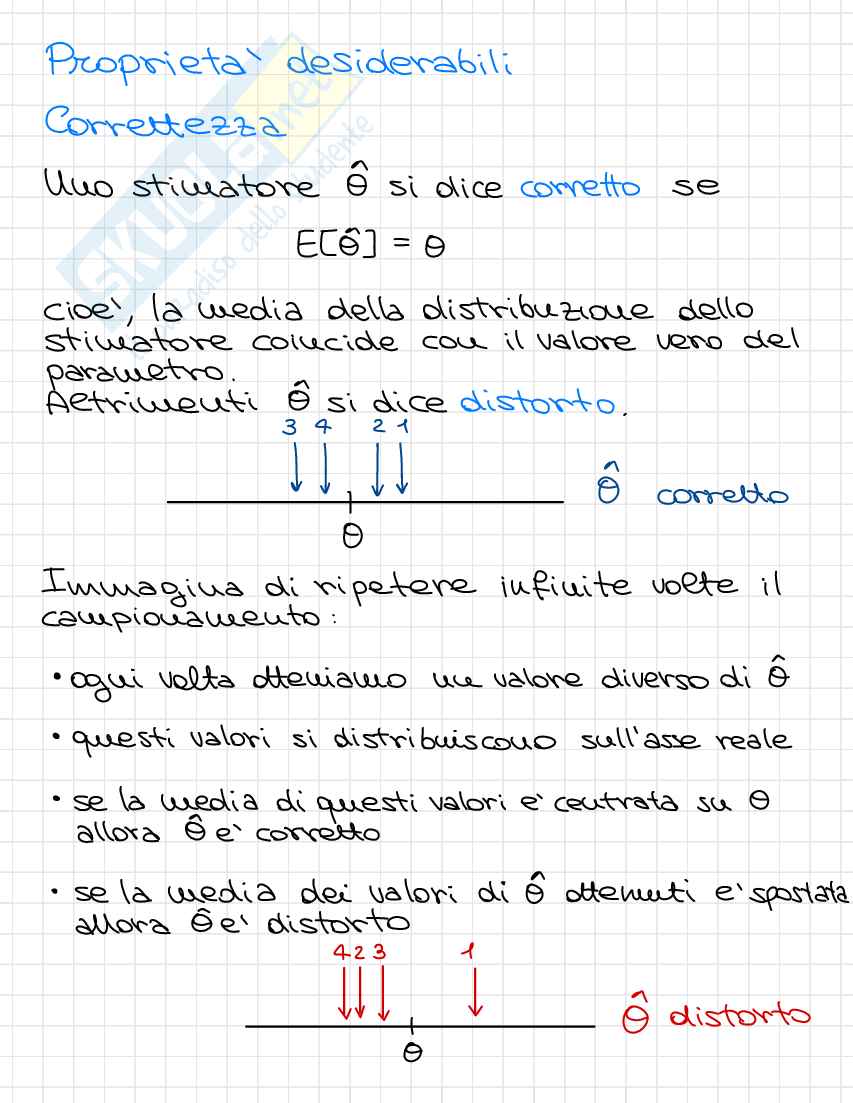 Proprieta' desiderabili
Correttezza
Uno stimatore θ̂ si dice corretto se
E[θ̂] = θ
cioe', la media della distribuzione dello
stimatore coincide con il valore vero del
parametro.
Altrimenti θ̂ si dice distorto.
3 4 2 1
θ̂ corretto
θ
Immagina di ripetere infinite volte il
campionamento:
• ogni volta otteniamo un valore diverso di θ̂
• questi valori si distribuiscono sull'asse reale
• se la media di questi valori e' centrata su θ
allora θ̂ e' corretto
• se la media dei valori di θ̂ ottenuti e' spostata
allora θ̂ e' distorto
4 2 3 1
θ̂ distorto
θ
SKUOLA.net
il paradiso dello studente